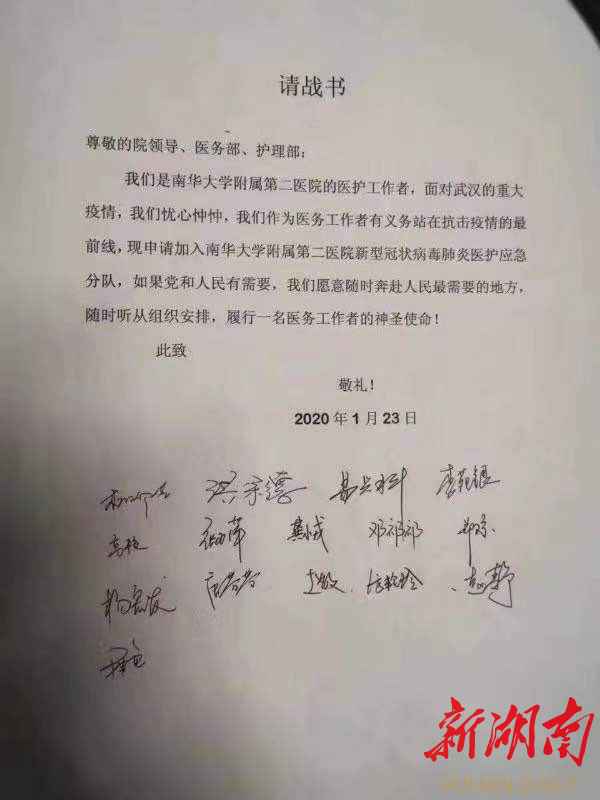 请战书
尊敬的院领导、医务部、护理部:
我们是南华大学附属第二医院的医护工作者，面对武汉的重大
疫情，我们忧心忡忡，我们作为医务工作者有义务站在抗击疫情的最
前线，现申请加入南华大学附属第二医院新型冠状病毒肺炎医护应急
分队，如果党和人民有需要，我们愿意随时奔赴人民最需要的地方，
随时听从组织安排，履行一名医务工作者的神圣使命！
此致
敬礼！
2020 年 1 月 23 日
邓祁祁
新湖南